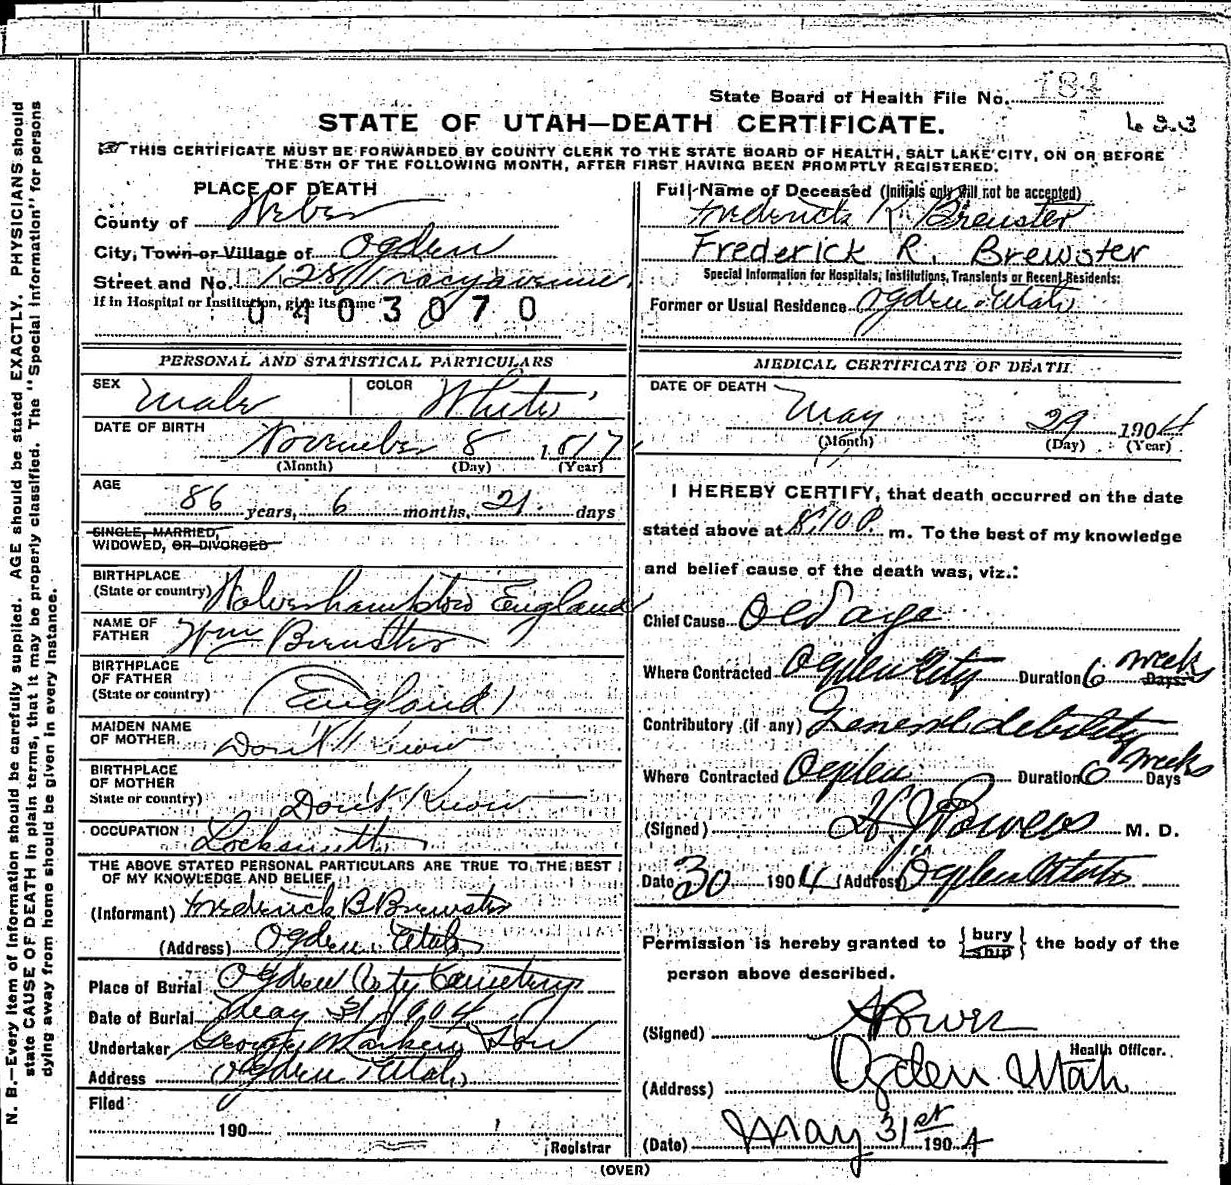 State Board of Health File No. 184
STATE OF UTAH—DEATH CERTIFICATE.
THIS CERTIFICATE MUST BE FORWARDED BY COUNTY CLERK TO THE STATE BOARD OF HEALTH, SALT LAKE CITY, ON OR BEFORE
THE 5TH OF THE FOLLOWING MONTH, AFTER FIRST HAVING BEEN PROMPTLY REGISTERED.
PLACE OF DEATH
County of Weber
City, Town or Village of Ogden
Street and No. Tracy avenue
If in Hospital or Institution, give its name
0403070
Full Name of Deceased (Initials only will not be accepted)
Frederick R. Brewster
Frederick R. Brewster
Special Information for Hospitals, Institutions, Transients or Recent Residents:
Former or Usual Residence Ogden Utah
PERSONAL AND STATISTICAL PARTICULARS
SEX Male COLOR White
DATE OF BIRTH
November 8 1817
(Month) (Day) (Year)
AGE
86 years, 6 months, 21 days
SINGLE, MARRIED,
WIDOWED, OR DIVORCED
BIRTHPLACE
(State or country) Wolverhampton England
NAME OF
FATHER Wm Brewster
BIRTHPLACE
OF FATHER
(State or country) England
MAIDEN NAME
OF MOTHER Don't Know
BIRTHPLACE
OF MOTHER
State or country) Don't Know
OCCUPATION Locksmith
THE ABOVE STATED PERSONAL PARTICULARS ARE TRUE TO THE BEST
OF MY KNOWLEDGE AND BELIEF
(Informant) Frederick B Brewster
(Address) Ogden Utah
Place of Burial Ogden City Cemetery
Date of Burial May 31 1904
Undertaker George
Address Ogden Utah
Filed
190
Registrar
MEDICAL CERTIFICATE OF DEATH
DATE OF DEATH
May 29 1904
(Month) (Day) (Year)
I HEREBY CERTIFY, that death occurred on the date
stated above at m. To the best of my knowledge
and belief cause of the death was, viz.:
Chief Cause Old age
Where Contracted Ogden City Duration 6 weeks Days
Contributory (if any) General debility
Where Contracted Ogden Duration 6 weeks Days
(Signed) H. J. Powers M. D.
Date 30 1904 (Address) Ogden Utah
Permission is hereby granted to { bury ship } the body of the
person above described.
(Signed) Powers
Health Officer.
(Address) Ogden Utah
(Date) May 31st 1904
(OVER)
N. B.—Every item of information should be carefully supplied. AGE should be stated EXACTLY. PHYSICIANS should
state CAUSE OF DEATH in plain terms, that it may be properly classified. The "Special Information" for persons
dying away from home should be given in every instance.